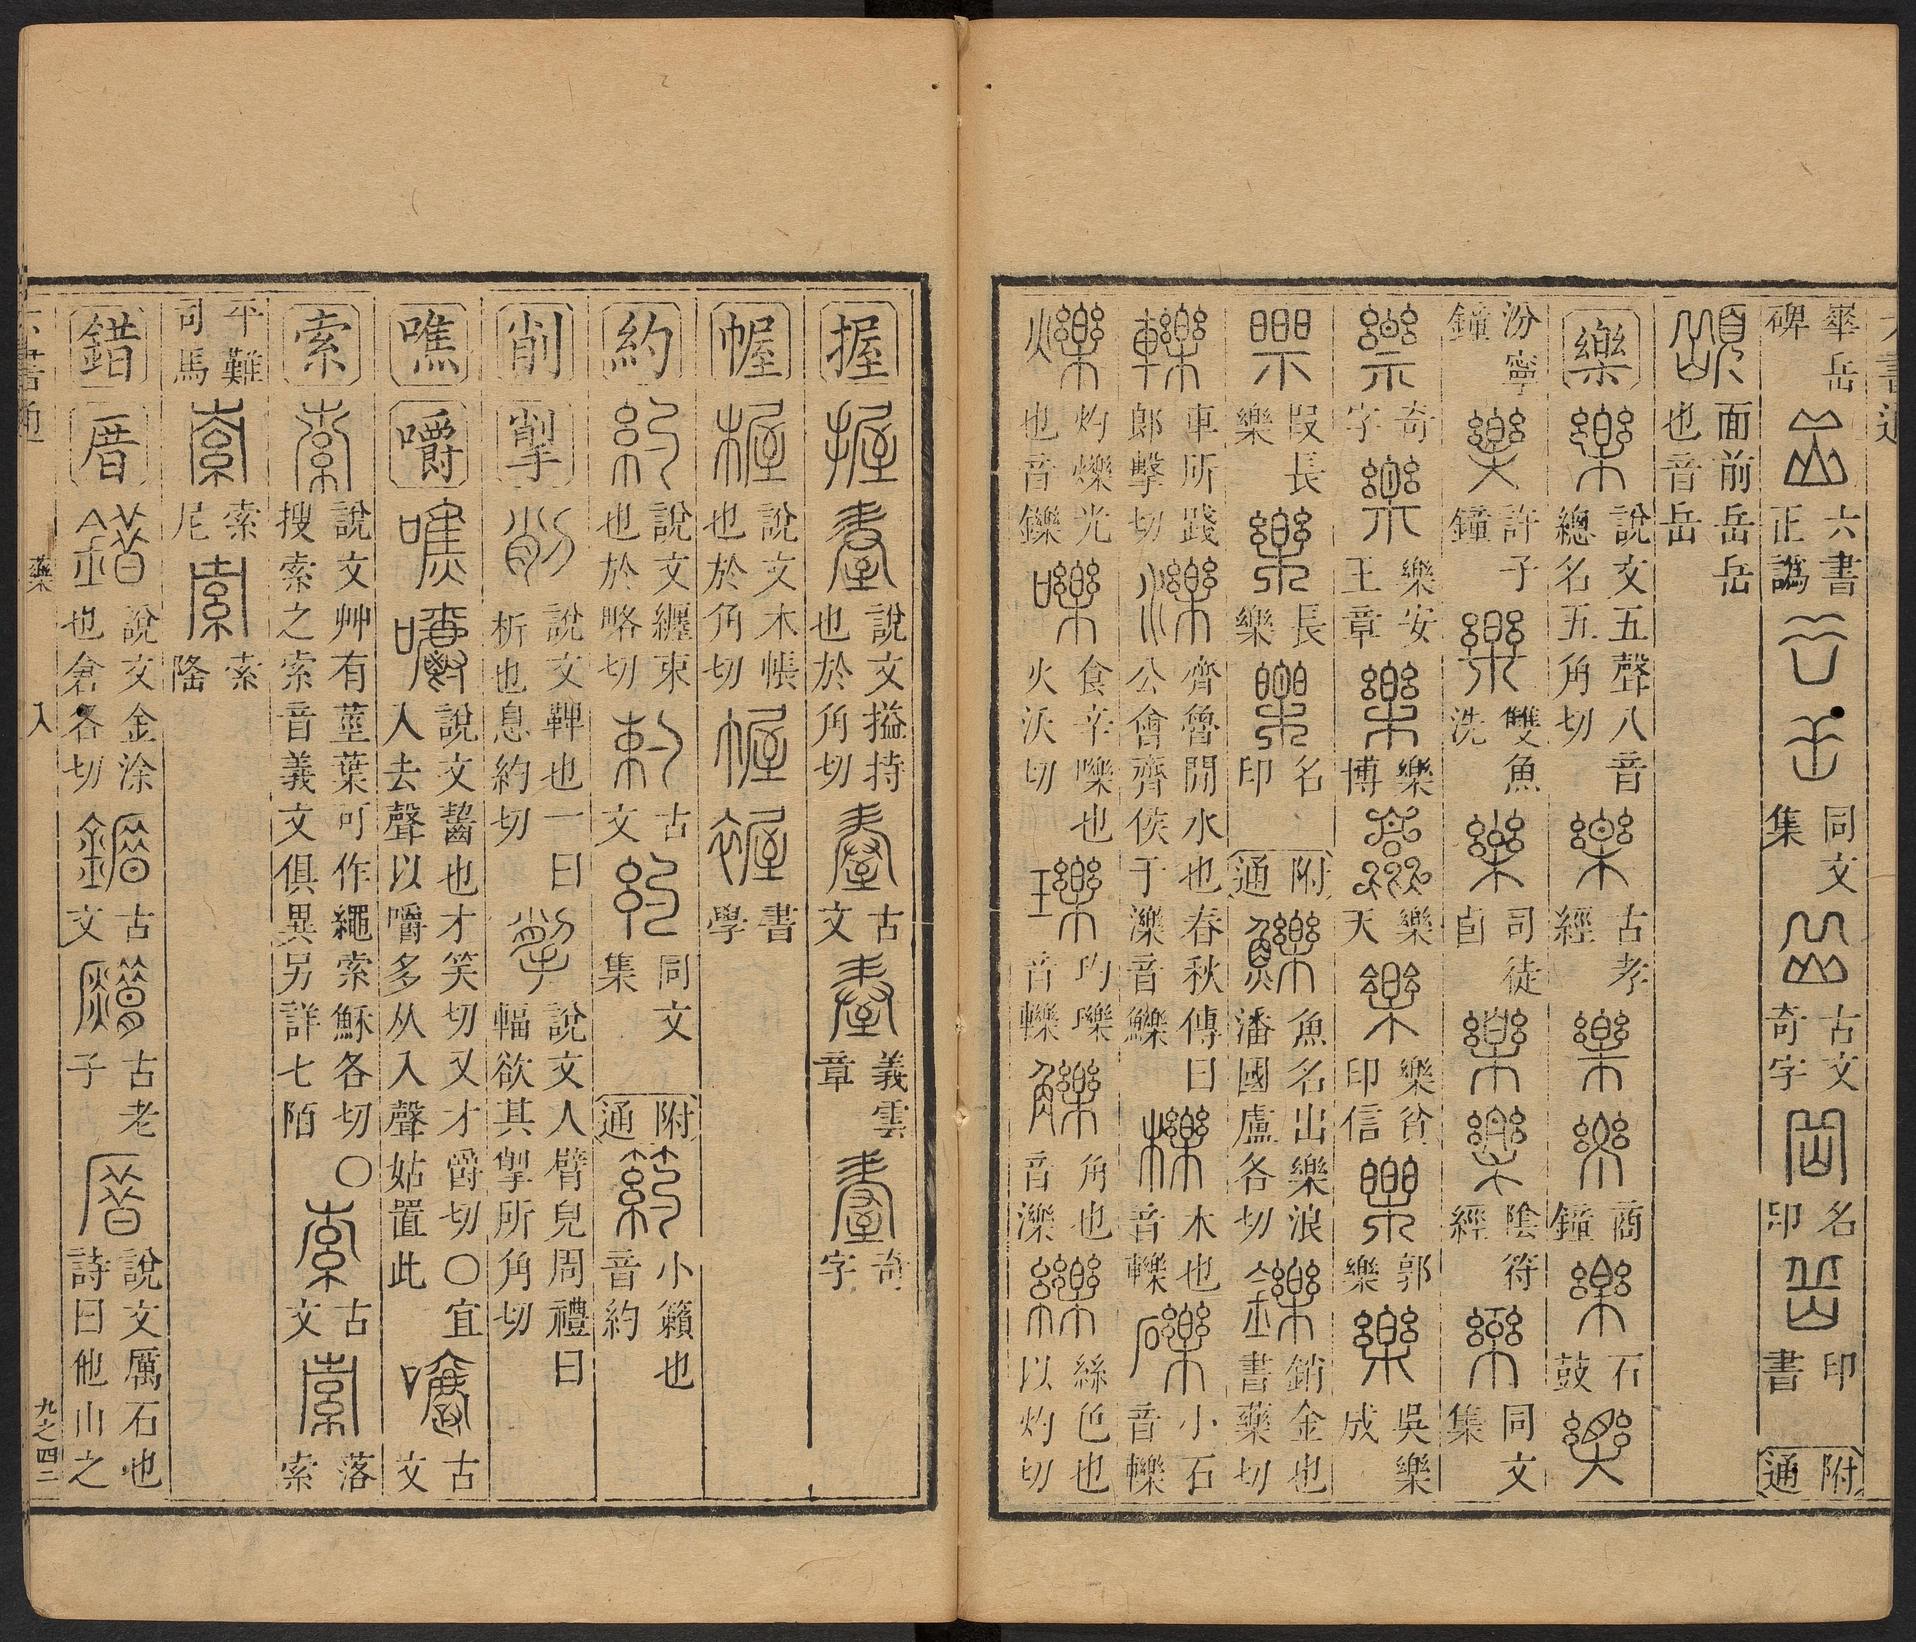 六書通
華岳碑 岳 六書正譌 岳 岳 同文集 岳 古文奇字 岳 名印 岳 印書 附通
面前岳岳也音岳
樂 樂 說文五聲八音總名五角切 樂 古孝經 樂 樂 商鐘 樂 石鼓 樂
汾寧鐘 樂 許子鐘 樂 雙魚洗 樂 司徒卣 樂 樂 陰符經 樂 同文集
樂 奇字 樂 樂安王章 樂 樂博 樂 樂天 樂 樂貧印信 樂 郭樂 樂 吳樂成
樂 叚長樂 樂 長樂 樂 名印 附通 鱳 魚名出樂浪潘國盧各切 鑠 銷金也書藥切
轢 車所踐郎擊切 濼 齊魯閒水也春秋傳曰公會齊侯于濼音鱳 櫟 木也音轢 礫 小石音轢
爍 灼爍光也音鑠 嚛 食辛嚛也火沃切 瓅 玓瓅音轢 觻 角也音濼 纅 絲色也以灼切
握 握 握 說文搤持也於角切 握 古文 握 義雲章 握 奇字
幄 楃 說文木帳也於角切 幄 幄 書學
約 約 說文纏束也於略切 約 古文 約 同文集 附通 箹 小籟也音約
削 揱 削 說文鞞也一曰析也息約切 揱 說文人臂皃周禮曰輻欲其揱所角切
噍 嚼 噍 嚼 說文齧也才笑切又才爵切〇宜入去聲以嚼多从入聲姑置此 嚼 古文
索 索 說文艸有莖葉可作繩索穌各切〇搜索之索音義文俱異另詳七陌 索 古文 索 落索
平難司馬 索 索尼 索 索隆
錯 厝 錯 說文金涂也倉各切 錯 古文 錯 古老子 厝 說文厲石也詩曰他山之
六書通 藥 入 九之四二